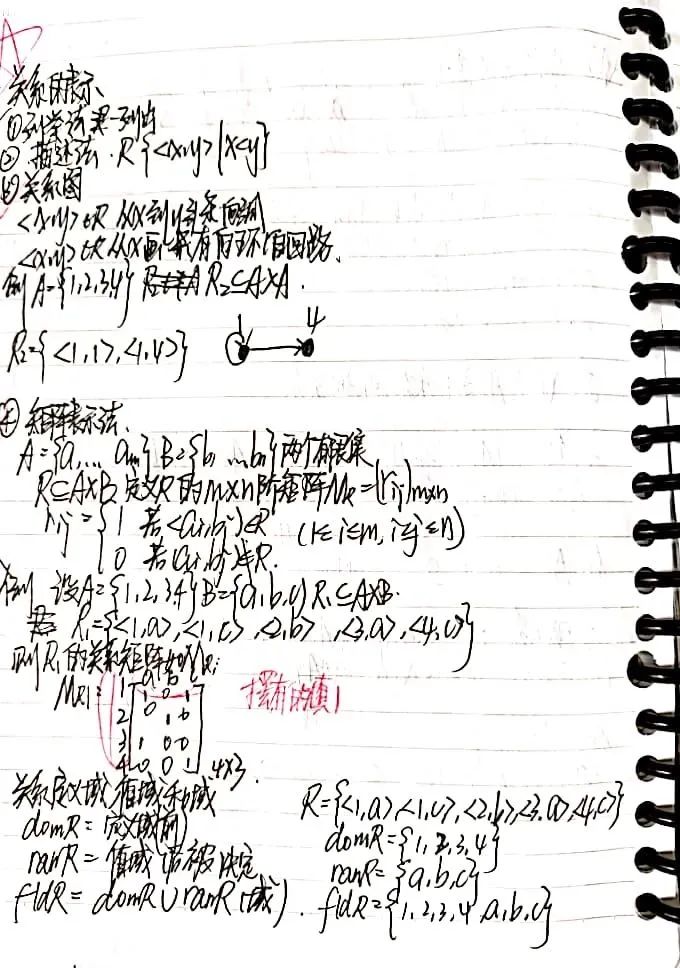 A
关系的表示
①列举法 一一列出
② 描述法. R{<x,y>|x<y}
③关系图
<x,y>∈R 从x到y 条
<x,y>∈R 从x画一条有向环 回路.
例 A={1,2,3,4} R₂⊆A×A.
R₂={<1,1>,<1,4>} 1 4
④ 矩阵表示法.
A={a₁...aₘ} B={b₁...bₙ}两个有限集
R⊆A×B 定义R的m×n阶矩阵M_R=(r_ij)m×n
r_ij={1 若<ai,bj>∈R (1≤i≤m, 1≤j≤n)
0 若<ai,bj>∉R.
例 设A={1,2,3,4}B={a,b,c} R₁⊆A×B.
R₁={<1,a>,<1,c>,<2,b>,<3,a>,<4,c>}
则R₁的关系矩阵如M_R₁
a b c
M_R1= 1 1 0 1 有的填1
2 0 1 0
3 1 0 0
4 0 0 1 4×3.
关系定义域 值域和域
domR=定义域(前)
ranR=值域
fldR=domR∪ranR(域).
R={<1,a>,<1,c>,<2,b>,<3,a>,<4,c>}
domR={1,2,3,4}
ranR={a,b,c}
fldR={1,2,3,4,a,b,c}